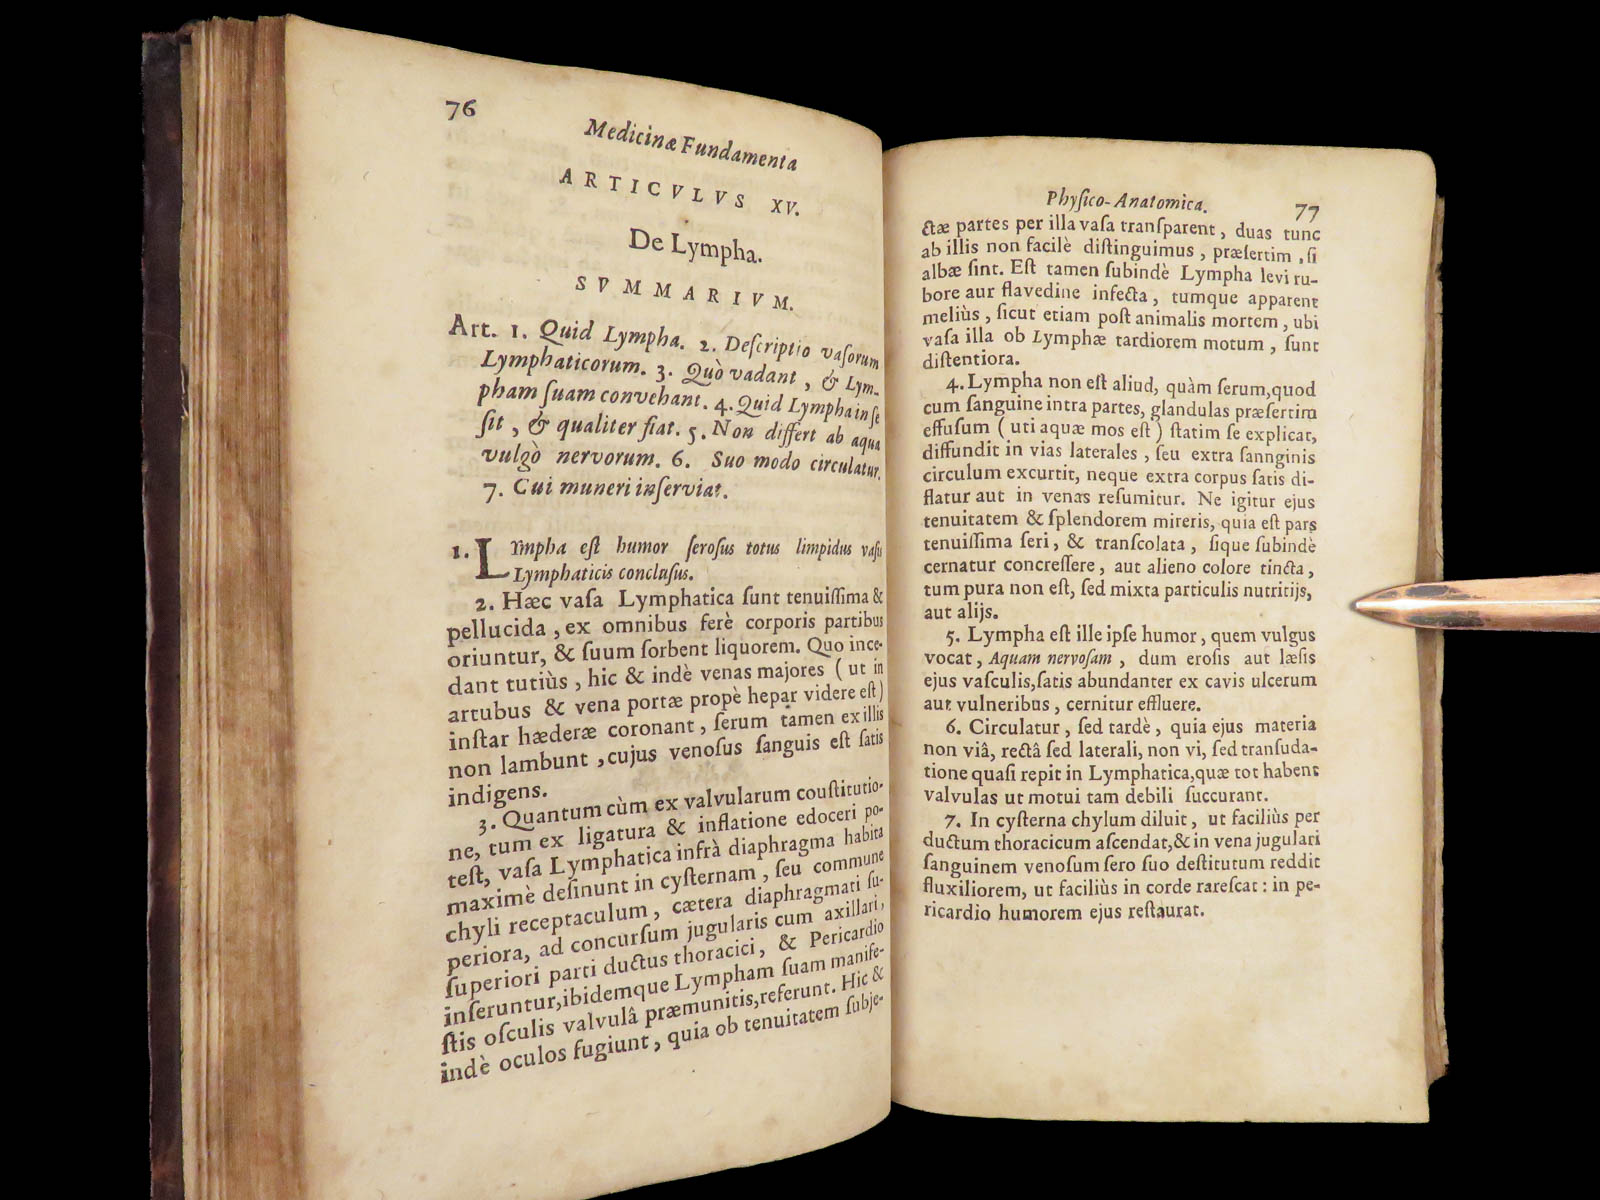 76
Medicinæ Fundamenta
ARTICVLVS XV.
De Lympha.
SVMMARIVM.
Art. 1. Quid Lympha. 2. Deſcriptio vaſorum
Lymphaticorum. 3. Quò vadant, & Lym-
pham ſuam convehant. 4. Quid Lympha in ſe
ſit, & qualiter fiat. 5. Non differt ab aqua
vulgò nervorum. 6. Suo modo circulatur.
7. Cui muneri inſerviat.
1. LYmpha eſt humor ſeroſus totus limpidus vaſis
Lymphaticis concluſus.
2. Hæc vaſa Lymphatica ſunt tenuiſſima &
pellucida, ex omnibus ferè corporis partibus
oriuntur, & ſuum ſorbent liquorem. Quo ince-
dant tutiùs, hic & indè venas majores (ut in
artubus & vena portæ propè hepar videre eſt)
inſtar hæderæ coronant, ſerum tamen ex illis
non lambunt, cujus venoſus ſanguis eſt ſatis
indigens.
3. Quantum cùm ex valvularum couſtitutio-
ne, tum ex ligatura & inflatione edoceri po-
teſt, vaſa Lymphatica infrà diaphragma habita
maximè deſinunt in cyſternam, ſeu commune
chyli receptaculum, cætera diaphragmati ſu-
periora, ad concurſum jugularis cum axillari,
ſuperiori parti ductus thoracici, & Pericardio
inſeruntur, ibidemque Lympham ſuam manife-
ſtis oſculis valvulâ præmunitis, referunt. Hic &
indè oculos fugiunt, quia ob tenuitatem ſubje-
Phyſico-Anatomica.
77
ctæ partes per illa vaſa tranſparent, duas tunc
ab illis non facilè diſtinguimus, præſertim, ſi
albæ ſint. Eſt tamen ſubindè Lympha levi ru-
bore aur flavedine infecta, tumque apparent
meliùs, ſicut etiam poſt animalis mortem, ubi
vaſa illa ob Lymphæ tardiorem motum, ſunt
diſtentiora.
4. Lympha non eſt aliud, quàm ſerum, quod
cum ſanguine intra partes, glandulas præſertim
effuſum (uti aquæ mos eſt) ſtatim ſe explicat,
diffundit in vias laterales, ſeu extra ſannginis
circulum excurtit, neque extra corpus ſatis di-
flatur aut in venas reſumitur. Ne igitur ejus
tenuitatem & ſplendorem mireris, quia eſt pars
tenuiſſima ſeri, & tranſcolata, ſique ſubindè
cernatur concreſſere, aut alieno colore tincta,
tum pura non eſt, ſed mixta particulis nutritijs,
aut alijs.
5. Lympha eſt ille ipſe humor, quem vulgus
vocat, Aquam nervoſam, dum eroſis aut læſis
ejus vaſculis, ſatis abundanter ex cavis ulcerum
aut vulneribus, cernitur effluere.
6. Circulatur, ſed tardè, quia ejus materia
non viâ, rectâ ſed laterali, non vi, ſed tranſuda-
tione quaſi repit in Lymphatica, quæ tot habent
valvulas ut motui tam debili ſuccurant.
7. In cyſterna chylum diluit, ut faciliùs per
ductum thoracicum aſcendat, & in vena jugulari
ſanguinem venoſum ſero ſuo deſtitutum reddit
fluxiliorem, ut faciliùs in corde rareſcat: in pe-
ricardio humorem ejus reſtaurat.